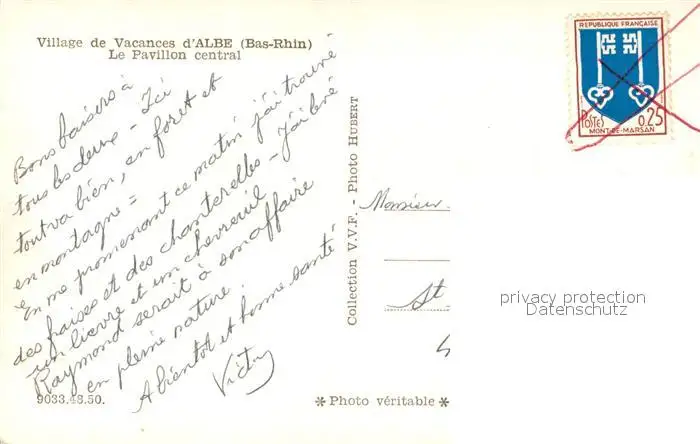 Village de Vacances d'ALBE (Bas-Rhin)
Le Pavillon central
Bons baisers à
tous les deux - Ici
tout va bien, en forêt et
en montagne =
En me promenant ce matin j'ai trouvé
des fraises et des chanterelles - J'ai levé
un lièvre et un chevreuil
Raymond serait à son affaire
en pleine nature.
A bientôt et bonne santé
9033.48.50.
✻ Photo véritable ✻
Collection V.V.F. - Photo HUBERT
REPUBLIQUE FRANÇAISE
POSTES 0,25
MONT-DE-MARSAN
Monsieur
St
privacy protection
Datenschutz